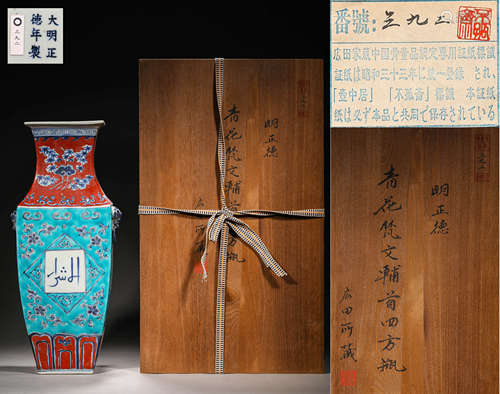 大明正
德年製
三九二
الشراء
明正德
青花梵文輔首四方瓶
広田所藏
番號:三九二
広田家蔵中国骨董品鑑定専用証紙標識
証紙は昭和三十三年に統一登錄され、
「壺中居」「不孤斎」標識 本証紙
紙は必ず本品と共同で保存されている
明正德
青花梵文輔首四方瓶
広田所藏